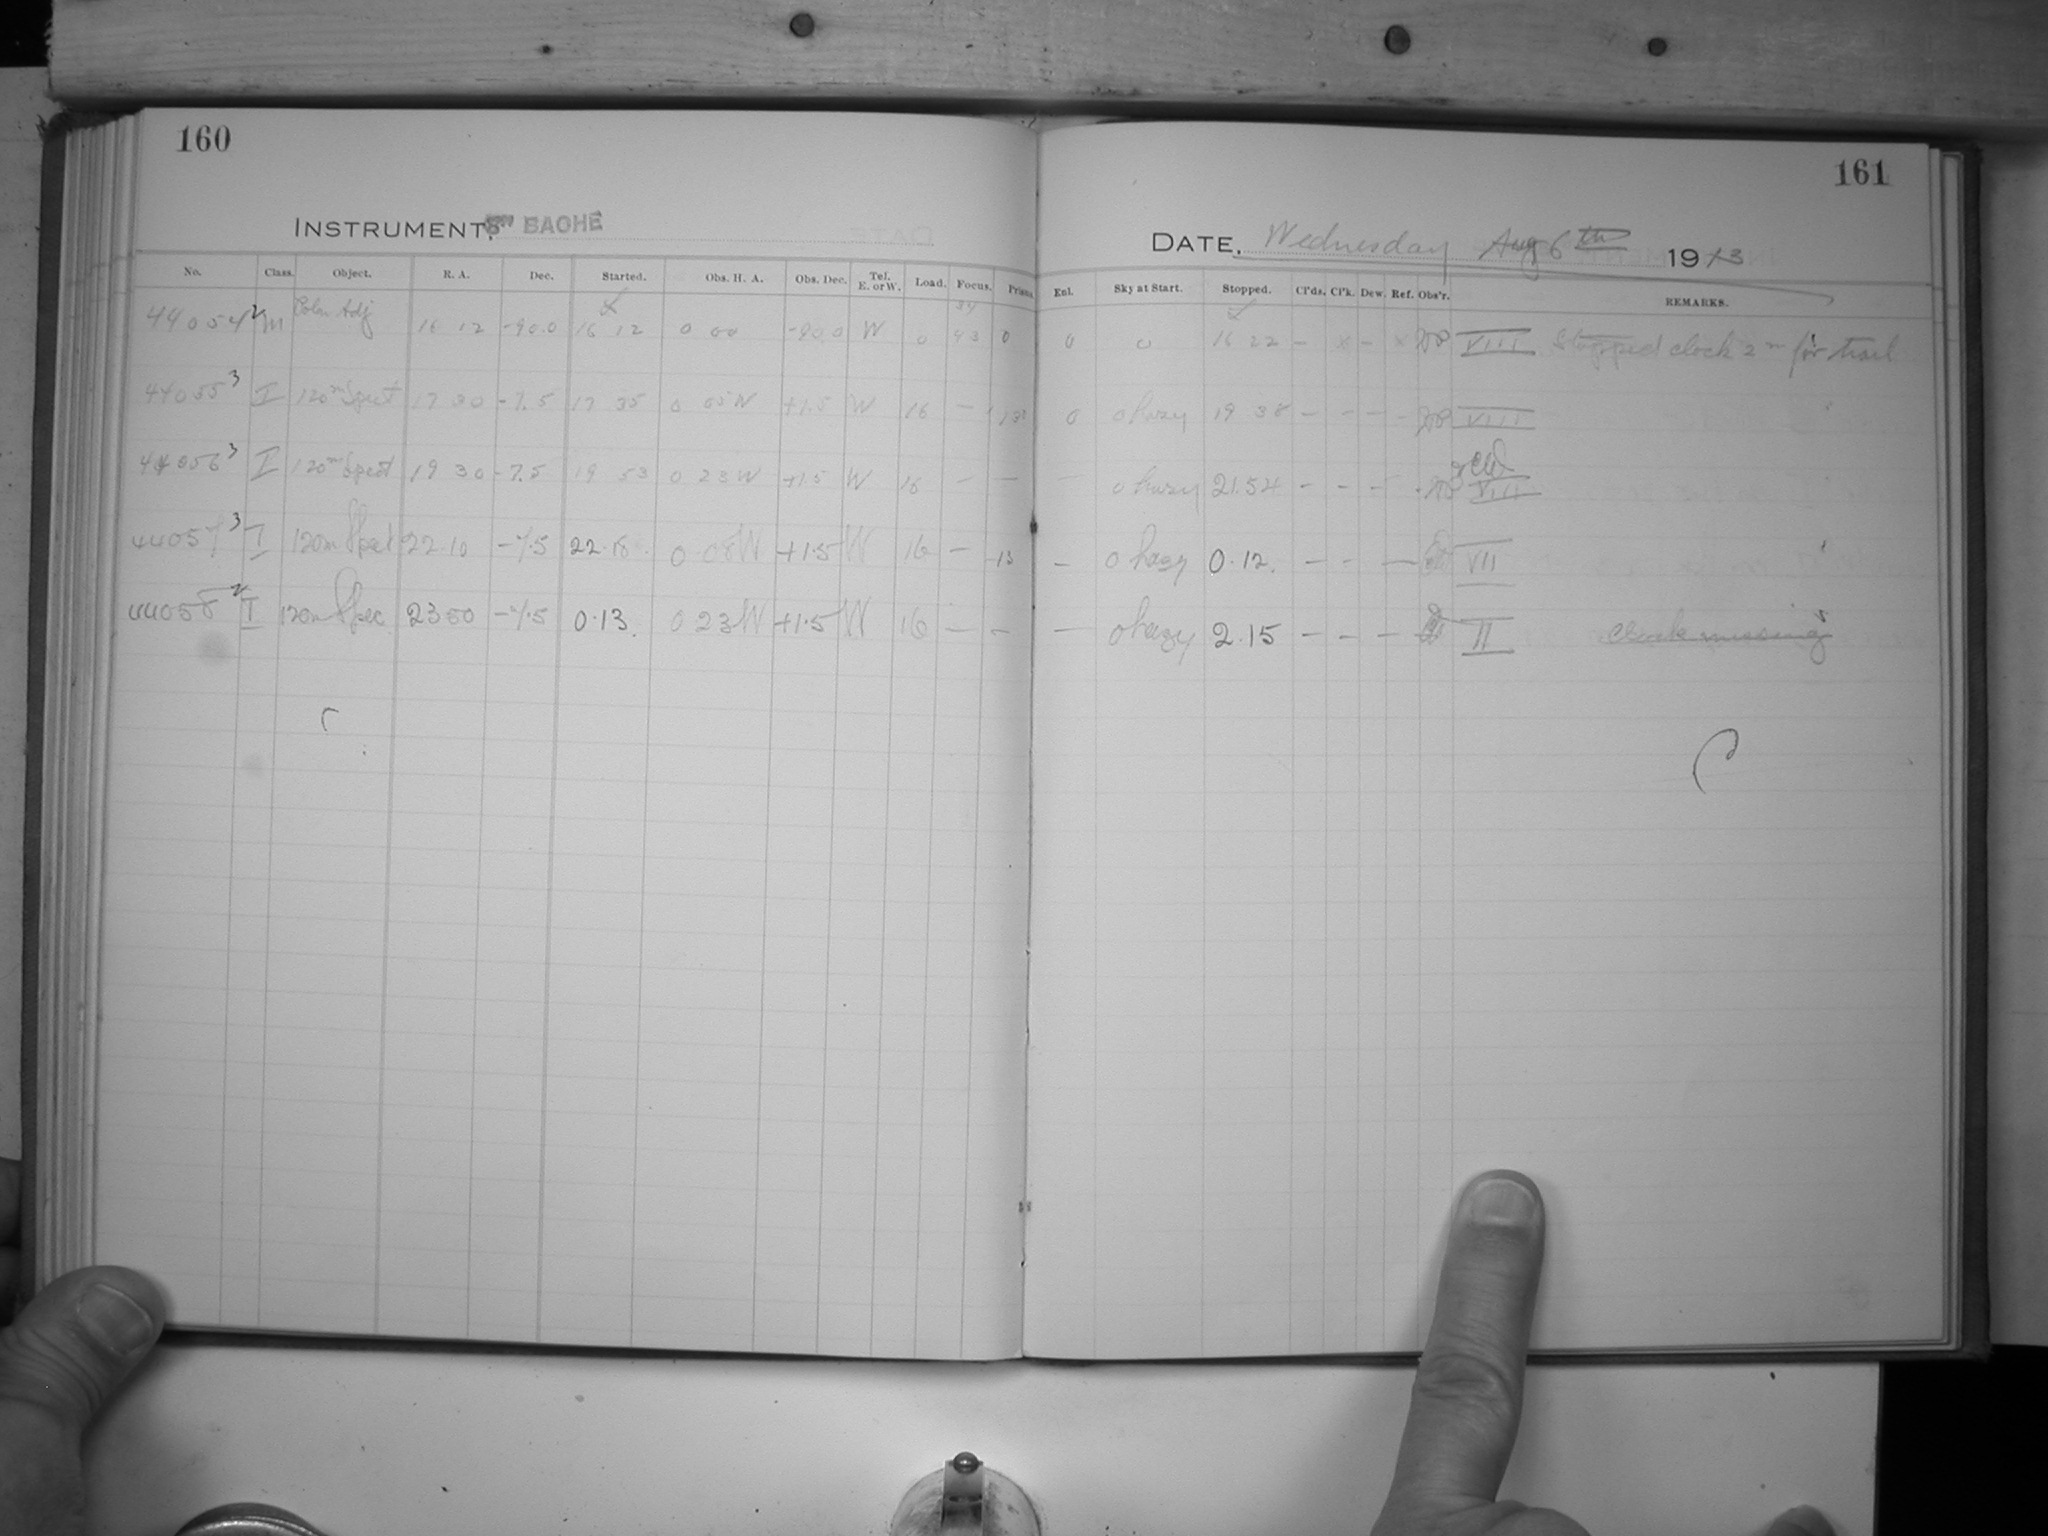 160
161
INSTRUMENT, 8" BACHE
DATE, Wednesday Aug 6th 1913
No. Class. Object. R. A. Dec. Started. Obs. H. A. Obs. Dec. Tel. E. or W. Load. Focus. Prism. Enl. Sky at Start. Stopped. Cl'ds. Cl'k. Dew. Ref. Obs'r. REMARKS.
44054 2 M Polar Adj 16 12 -90.0 16 12 0 00 -90.0 W 0 34 43 0 0 0 16 22 - x - x VIII Stopped clock 2m for trail
44055 3 I 120m Spect 17 30 -7.5 17 35 0 05 W +1.5 W 16 - 13 0 0 hazy 19 38 - - - - VIII
44056 3 I 120m Spect 19 30 -7.5 19 53 0 23 W +1.5 W 16 - - - 0 hazy 21.54 - - - VIII
44057 3 I 120m Spect 22 10 -7.5 22.18 0 08 W +1.5 W 16 - 13 - 0 hazy 0.12. - - - VII
44058 2 I 120m Spec 23 50 -7.5 0.13. 0 23 W +1.5 W 16 - - - 0 hazy 2.15 - - - II Clock missing